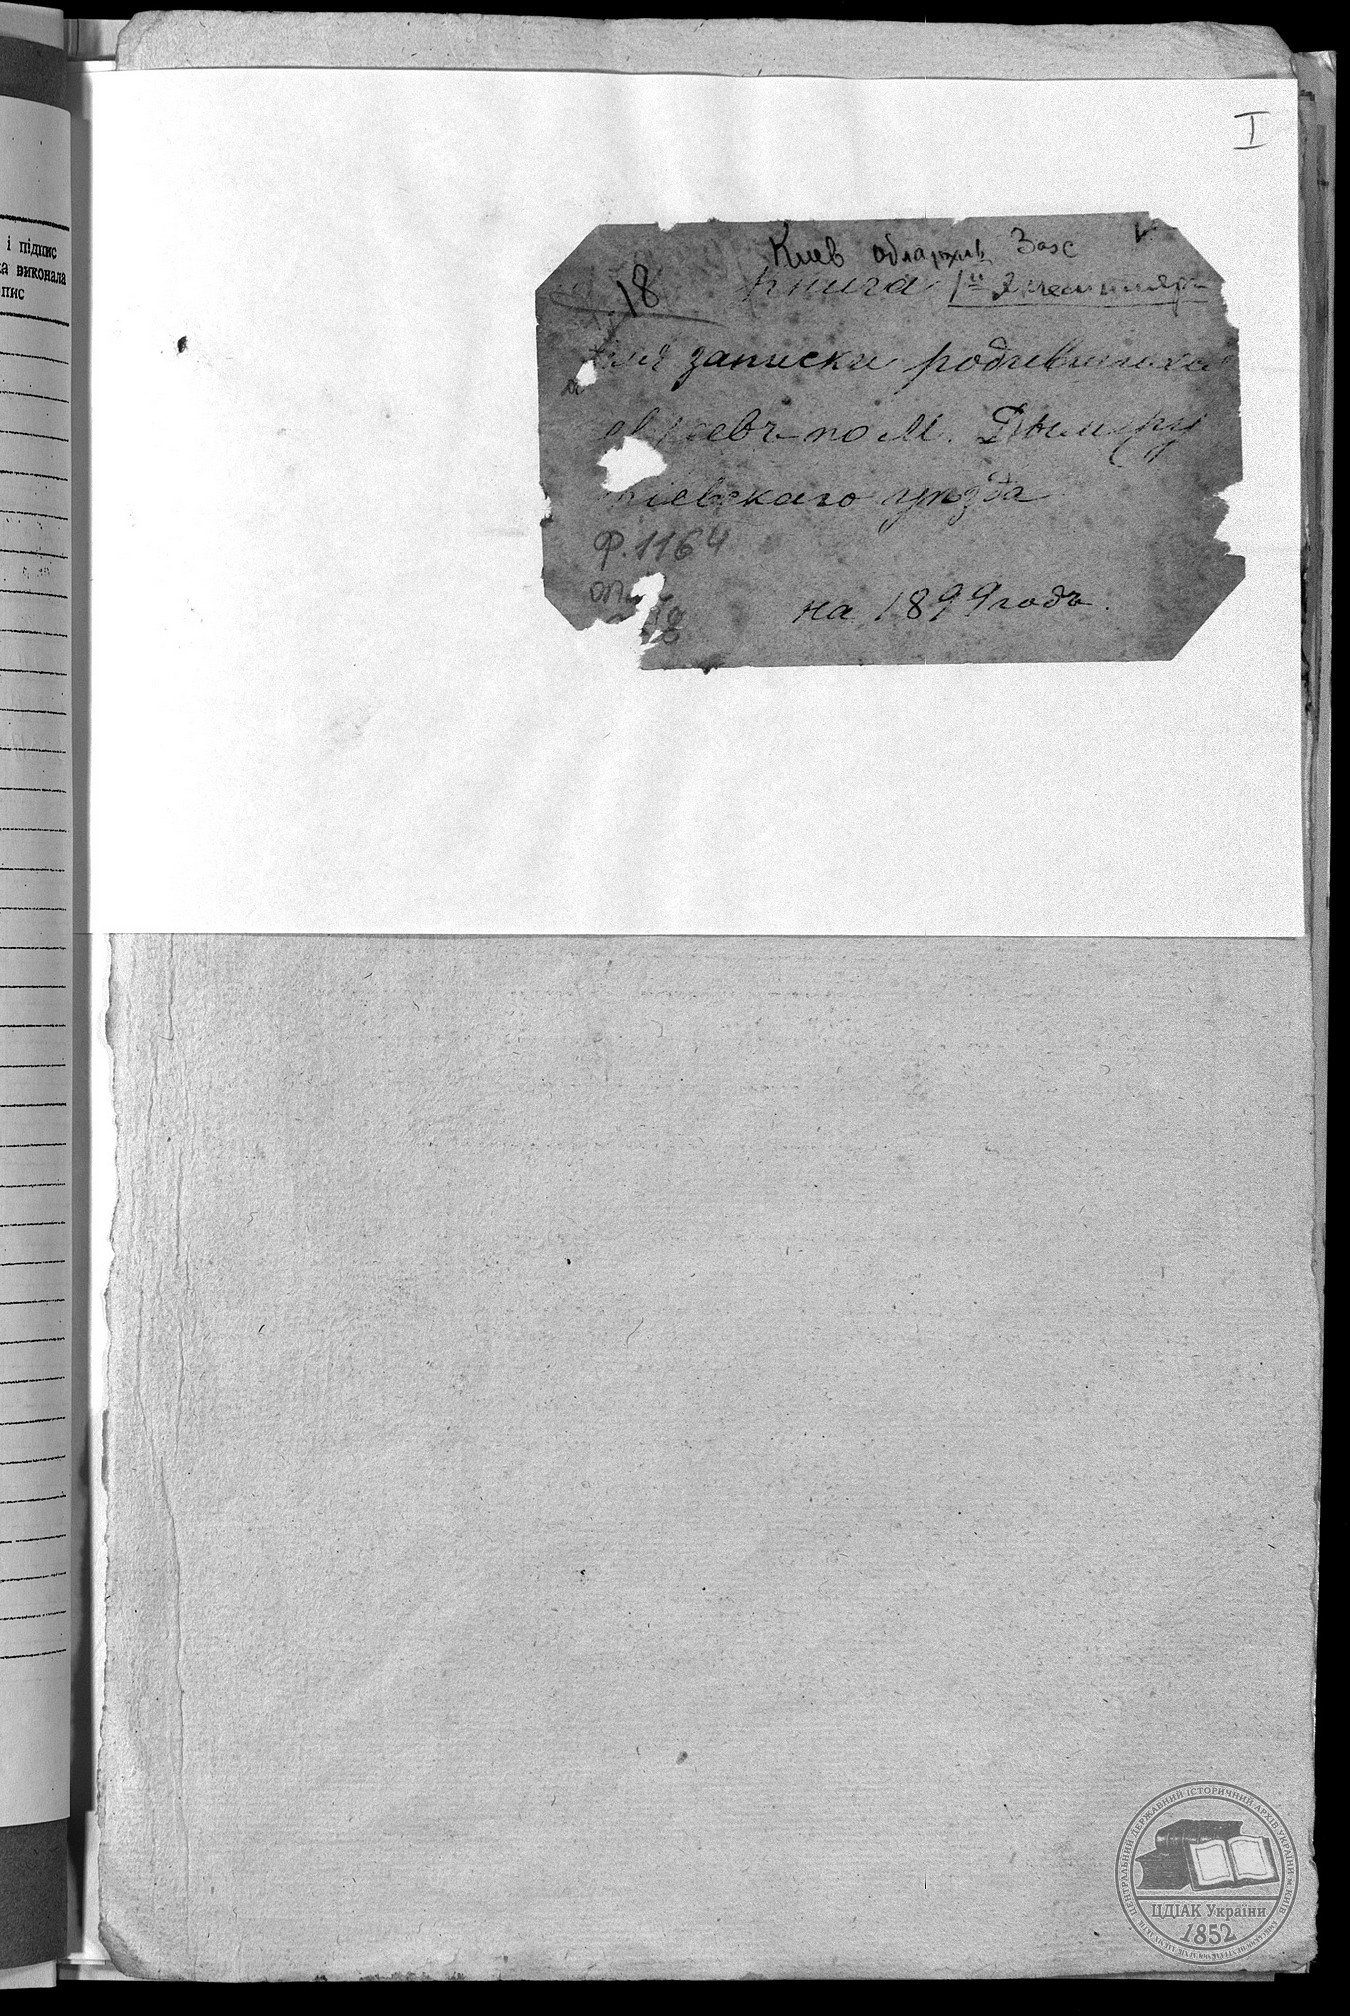 і підпис
ка виконала
опис
I
Киев облархив Загс
18
Книга 1й Экземпляръ
для записки родившихся
евреевъ по м. Дымеру
Кіевскаго уѣзда
Ф. 1164
оп.
18
на 1899 годъ.
ЦЕНТРАЛЬНИЙ ДЕРЖАВНИЙ ІСТОРИЧНИЙ АРХІВ УКРАЇНИ м. КИЇВ
ЦДІАК України
1852